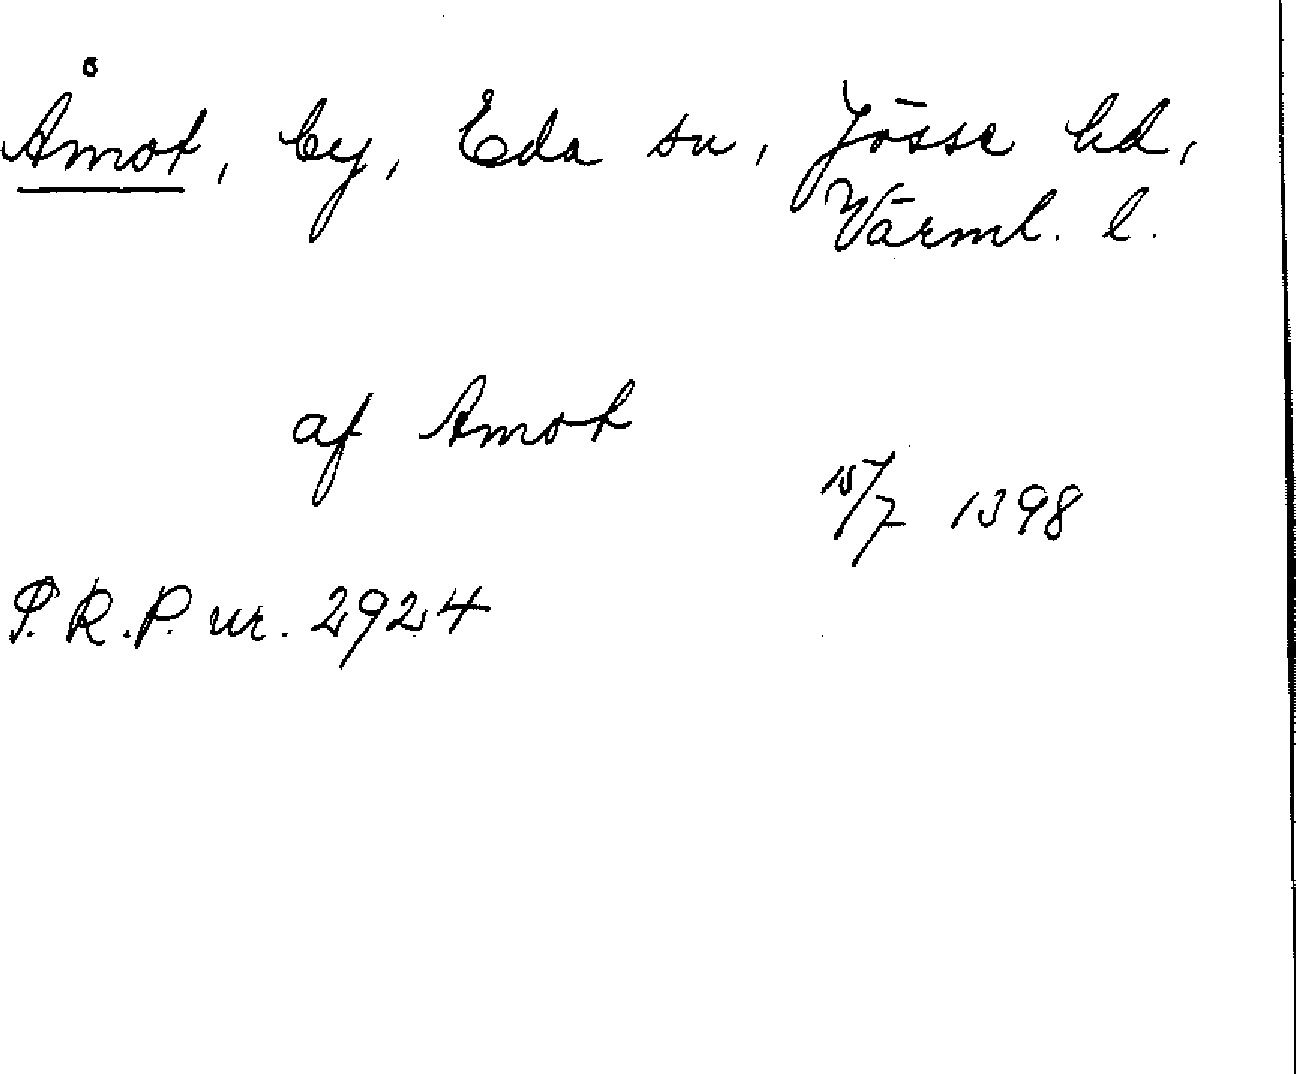 Åmot, by, Eda sn, Jösse hd,
Värml. l.
af Amot
15/7 1398
P.R.P. nr. 2924